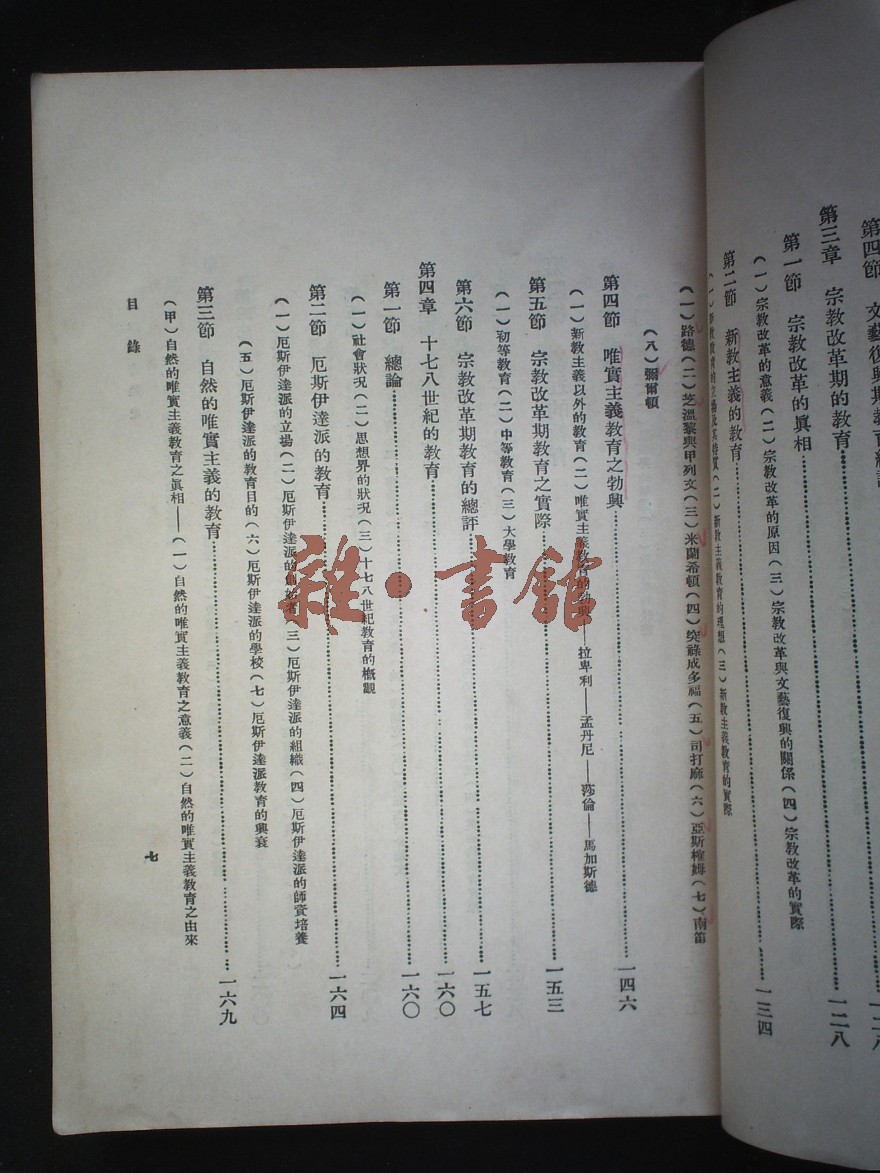 第四節 文藝復興期教育總評……一二八
第三章 宗教改革期的教育……一二八
第一節 宗教改革的眞相……
(一)宗教改革的意義(二)宗教改革的原因(三)宗教改革與文藝復興的關係(四)宗教改革的實際
第二節 新教主義的教育……一三四
(二)新教主義教育的理想(三)新教主義教育的實際
(一)路德(二)芝溫黎與甲列文(三)米蘭希頓(四)突祿成多福(五)司打麻(六)亞斯權姆(七)南笛
(八)彌爾頓
第四節 唯實主義教育之勃興……一四六
(一)新教主義以外的教育(二)唯實主義教育的勃興——拉卑利——孟丹尼——莎倫——馬加斯德
第五節 宗教改革期教育之實際……一五三
(一)初等教育(二)中等教育(三)大學教育
第六節 宗教改革期教育的總評……一五七
第四章 十七八世紀的教育……一六〇
第一節 總論……一六〇
(一)社會狀況(二)思想界的狀況(三)十七八世紀教育的概觀
第二節 厄斯伊達派的教育……一六四
(一)厄斯伊達派的立場(二)厄斯伊達派的創始者(三)厄斯伊達派的組織(四)厄斯伊達派的師資培養
(五)厄斯伊達派的教育目的(六)厄斯伊達派的學校(七)厄斯伊達派教育的興衰
第三節 自然的唯實主義的教育……一六九
(甲)自然的唯實主義教育之眞相——(一)自然的唯實主義教育之意義(二)自然的唯實主義教育之由來
目錄
七
雜·書館